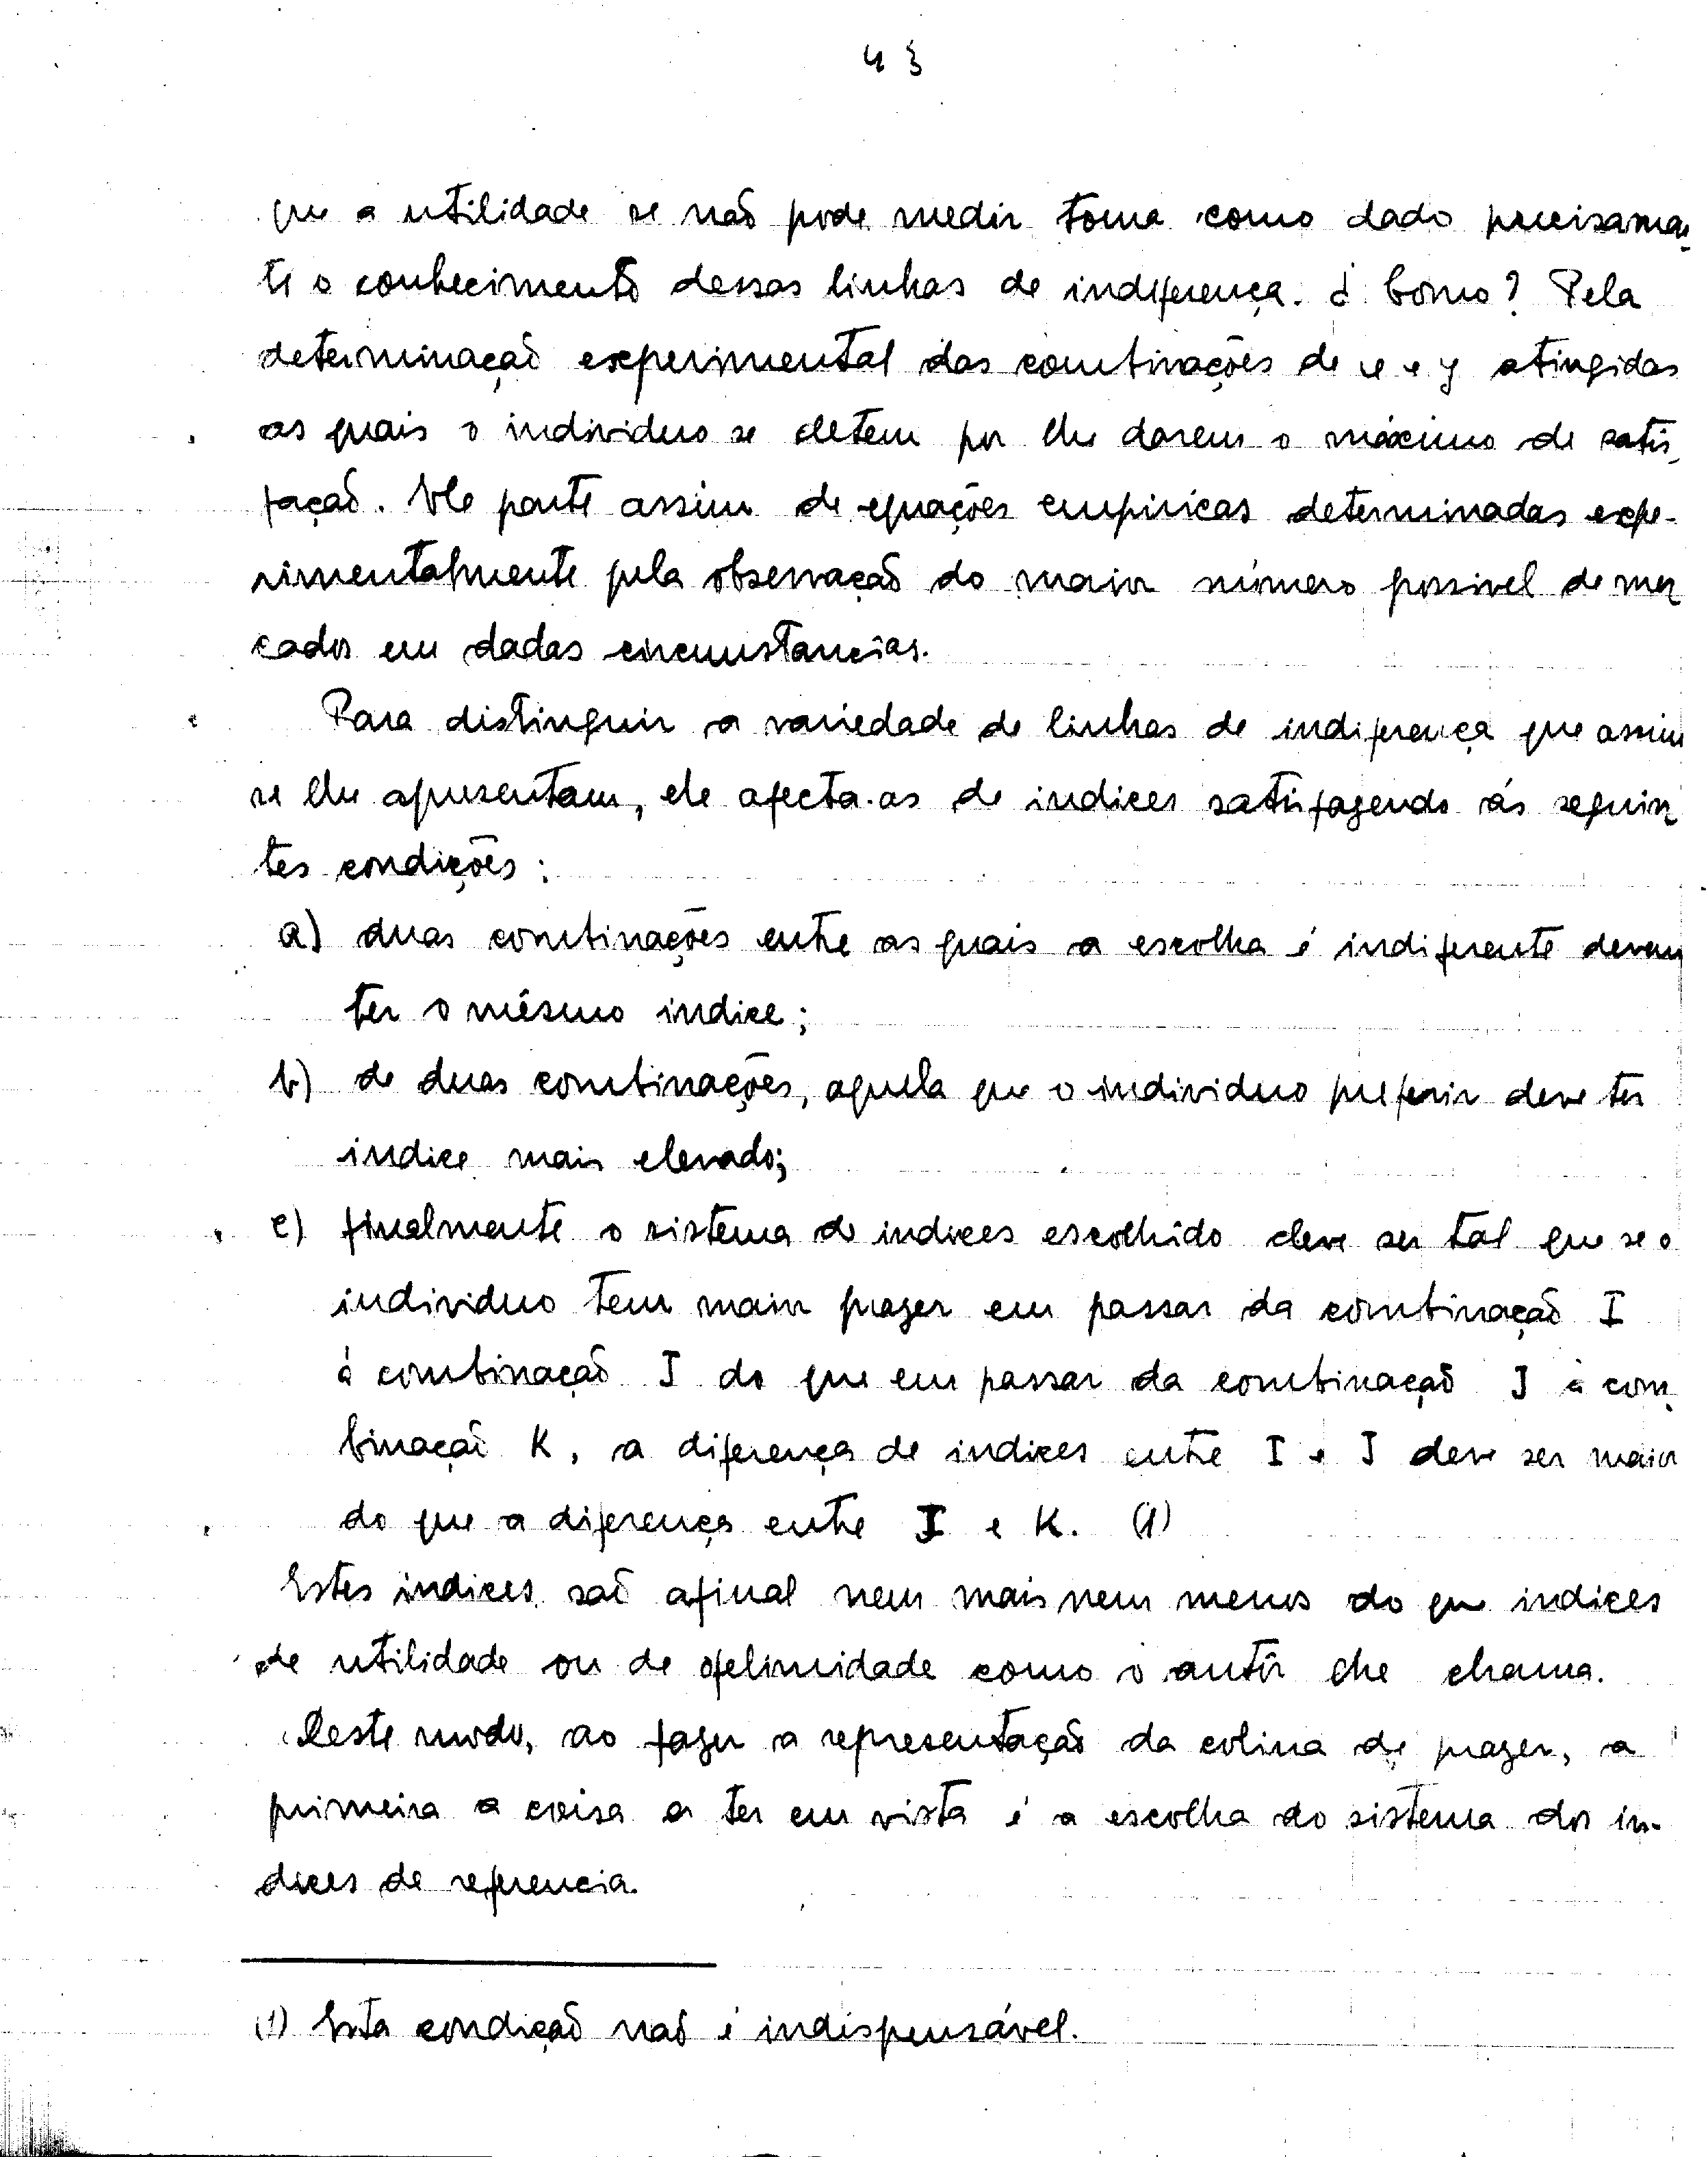 43
que a utilidade se não pode medir toma como dado precisamen
te o conhecimento dessas linhas de indiferença. ¿ Como? Pela
determinação experimental das combinações de x e y atingidas
as quais o individuo se detem por lhe darem o máximo de satis
fação. Ele parte assim de equações empiricas determinadas expe-
rimentalmente pela observação do maior número possivel de mer
cados em dadas circumstancias.
Para distinguir a variedade de linhas de indiferença que assim
se lhe apresentam, ele afecta-as de indices satisfazendo ás seguin
tes condições:
a) duas combinações entre as quais a escolha é indiferente devem
ter o mêsmo indice;
b) de duas combinações, aquela que o individuo preferir deve ter
indice mais elevado;
c) finalmente o sistema de indices escolhido deve ser tal que se o
individuo tem maior prazer em passar da combinação I
á combinação J do que em passar da combinação J á com
binação K, a diferença de indices entre I e J deve ser maior
do que a diferença entre J e K. (1)
Estes indices são afinal nem mais nem menos do que indices
de utilidade ou de ofelimidade como o autôr lhe chama.
Deste modo, ao fazer a representação da colina de prazer, a
primeira a coisa a ter em vista é a escolha do sistema dos in-
dices de referencia.
(1) Esta condição não é indispensável.